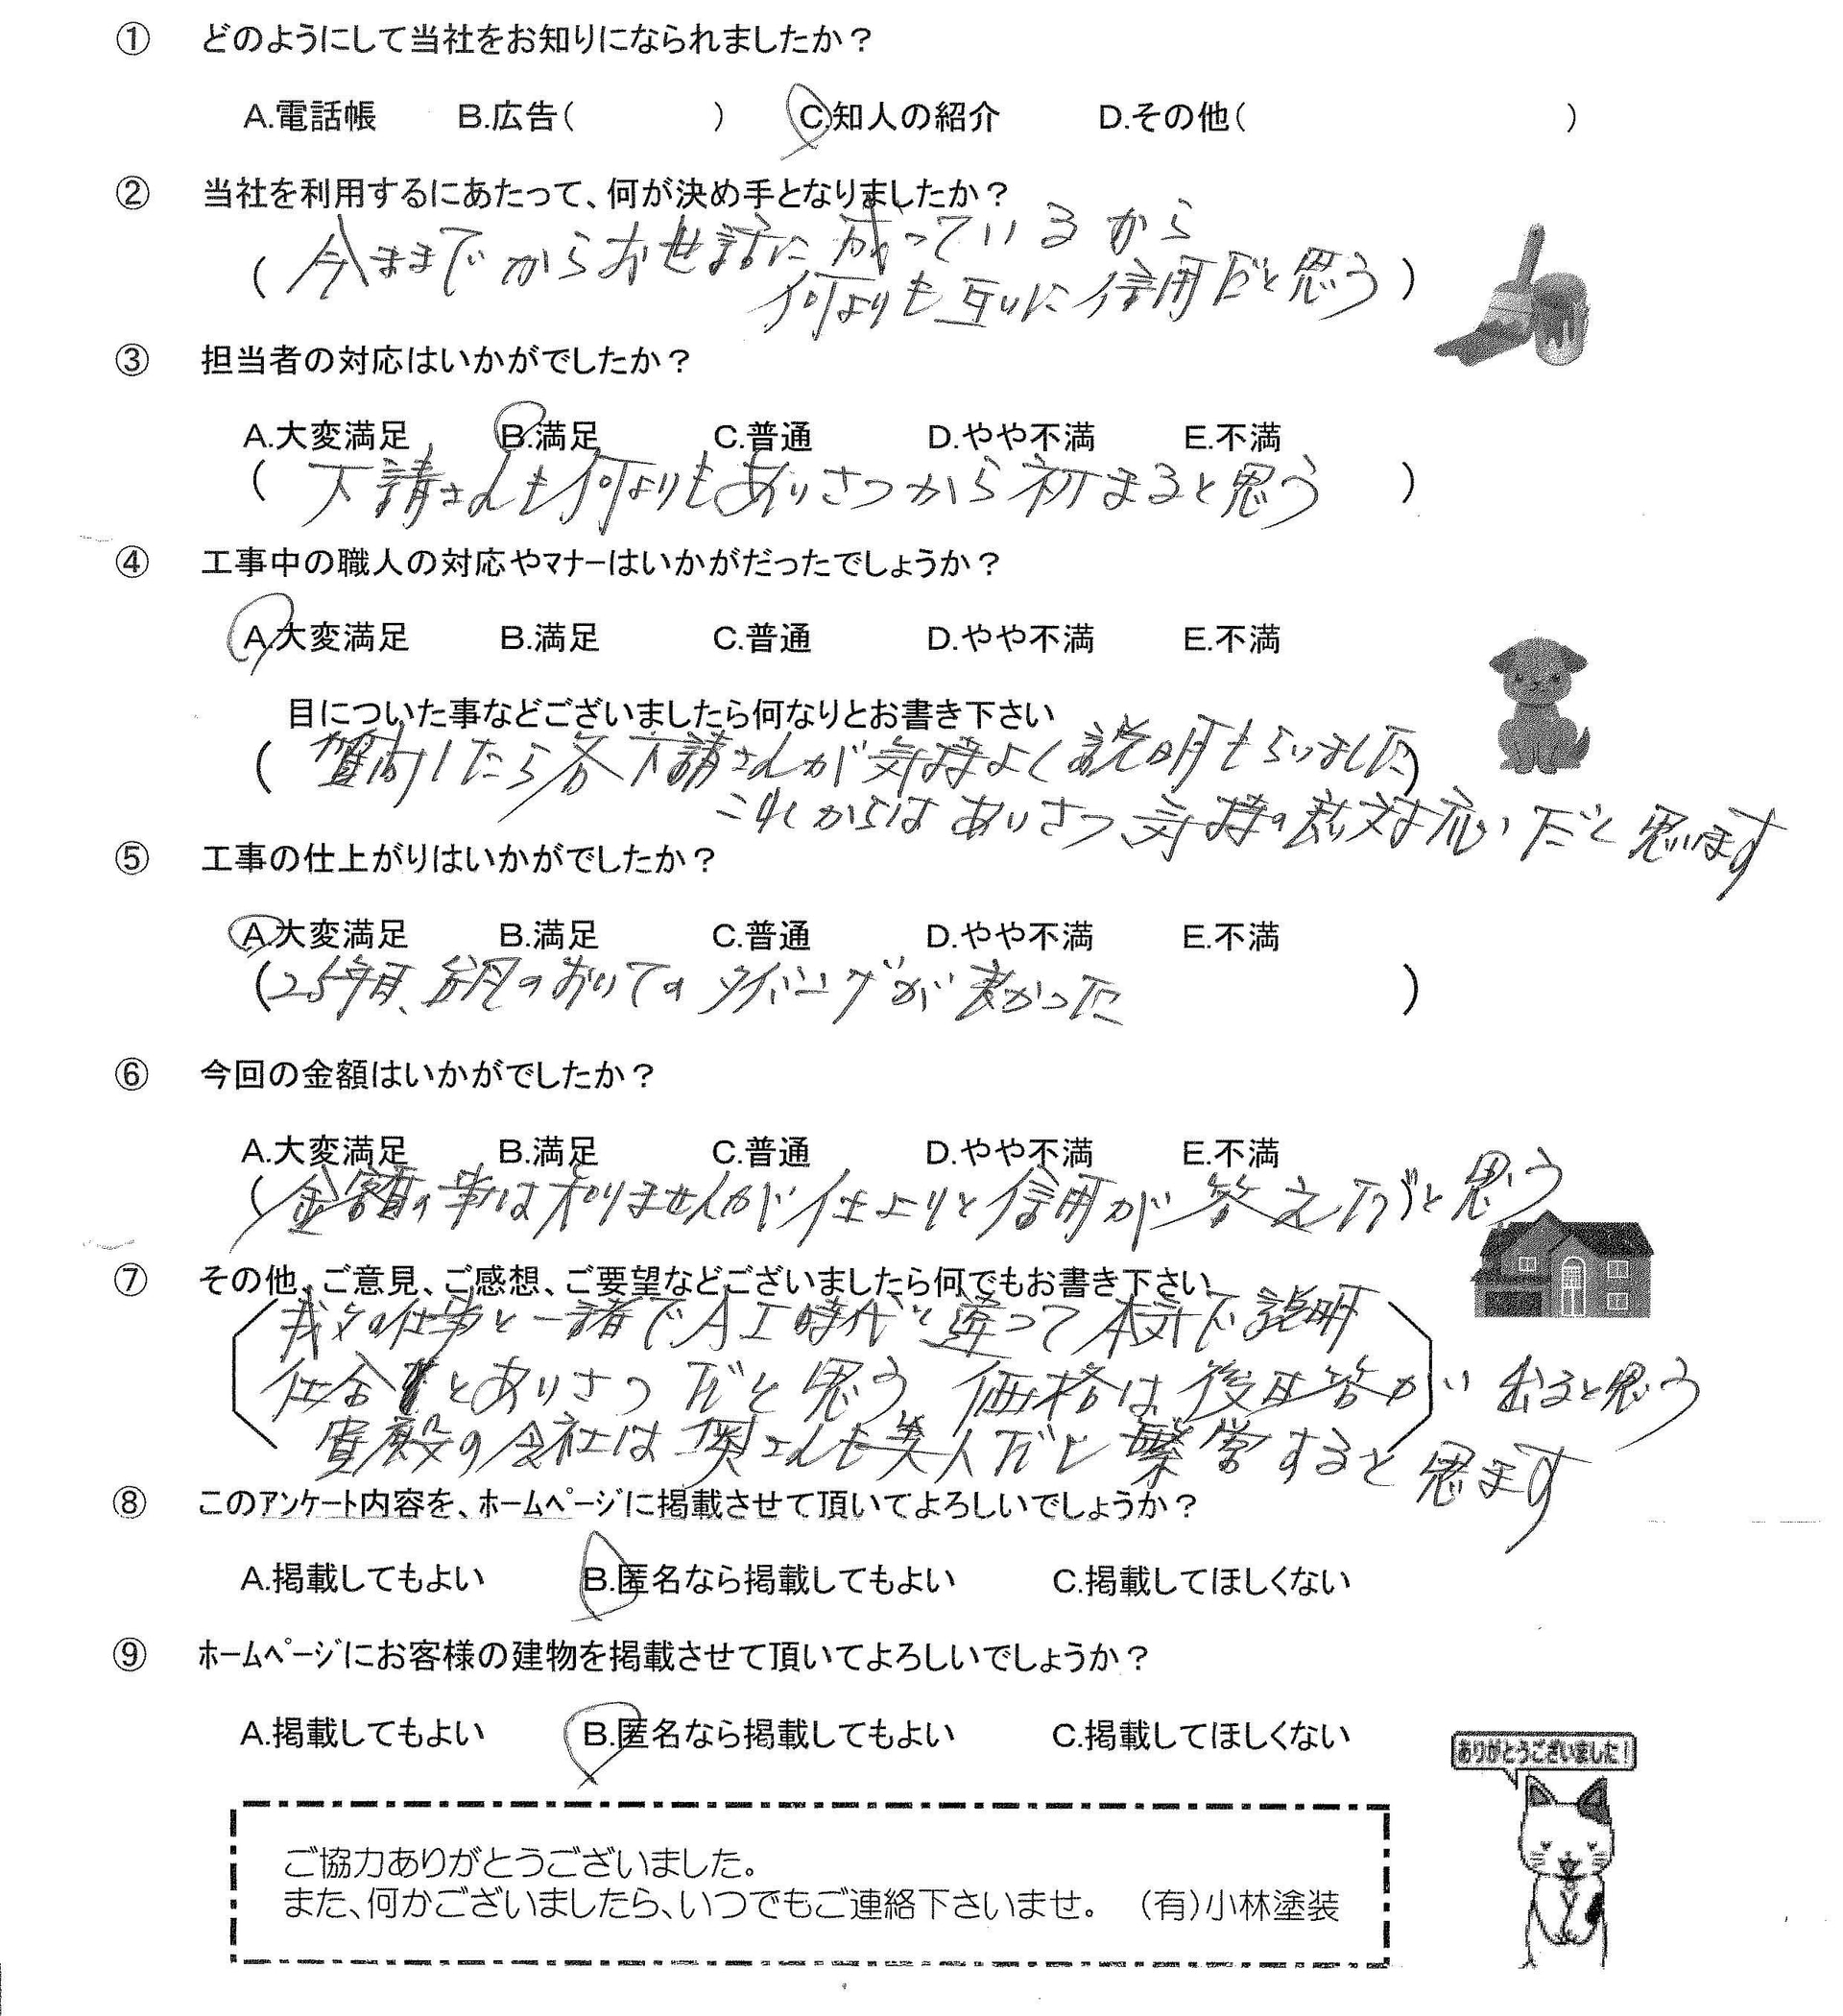 ① どのようにして当社をお知りになられましたか？
A.電話帳 B.広告( ) C.知人の紹介 D.その他( )
② 当社を利用するにあたって、何が決め手となりましたか？
( 今までからお世話に成っているから
何よりも互いに信用だと思う )
③ 担当者の対応はいかがでしたか？
A.大変満足 B.満足 C.普通 D.やや不満 E.不満
( 下請さんも何よりもあいさつから初まると思う )
④ 工事中の職人の対応やﾏﾅｰはいかがだったでしょうか？
A.大変満足 B.満足 C.普通 D.やや不満 E.不満
目についた事などございましたら何なりとお書き下さい
( 質問したら各下請さんが気持よく説明もらいました)
これからはあいさつ、気持の良い対応だと思います
⑤ 工事の仕上がりはいかがでしたか？
A.大変満足 B.満足 C.普通 D.やや不満 E.不満
(25年目、 のタイミングが良かった )
⑥ 今回の金額はいかがでしたか？
A.大変満足 B.満足 C.普通 D.やや不満 E.不満
( 金額の事は判りませんが仕上りと信用が答えだと思う
⑦ その他、ご意見、ご感想、ご要望などございましたら何でもお書き下さい
我々の仕事と一諸でAI時代と違って 説明
とあいさつだと思う 価格は後日答が出ると思う
貴殿の会社は奥さんも美人だし繁営すると思ます
⑧ このｱﾝｹｰﾄ内容を、ﾎｰﾑﾍﾟｰｼﾞに掲載させて頂いてよろしいでしょうか？
A.掲載してもよい B.匿名なら掲載してもよい C.掲載してほしくない
⑨ ﾎｰﾑﾍﾟｰｼﾞにお客様の建物を掲載させて頂いてよろしいでしょうか？
A.掲載してもよい B.匿名なら掲載してもよい C.掲載してほしくない
ありがとうございました！
ご協力ありがとうございました。
また、何かございましたら、いつでもご連絡下さいませ。 （有）小林塗装